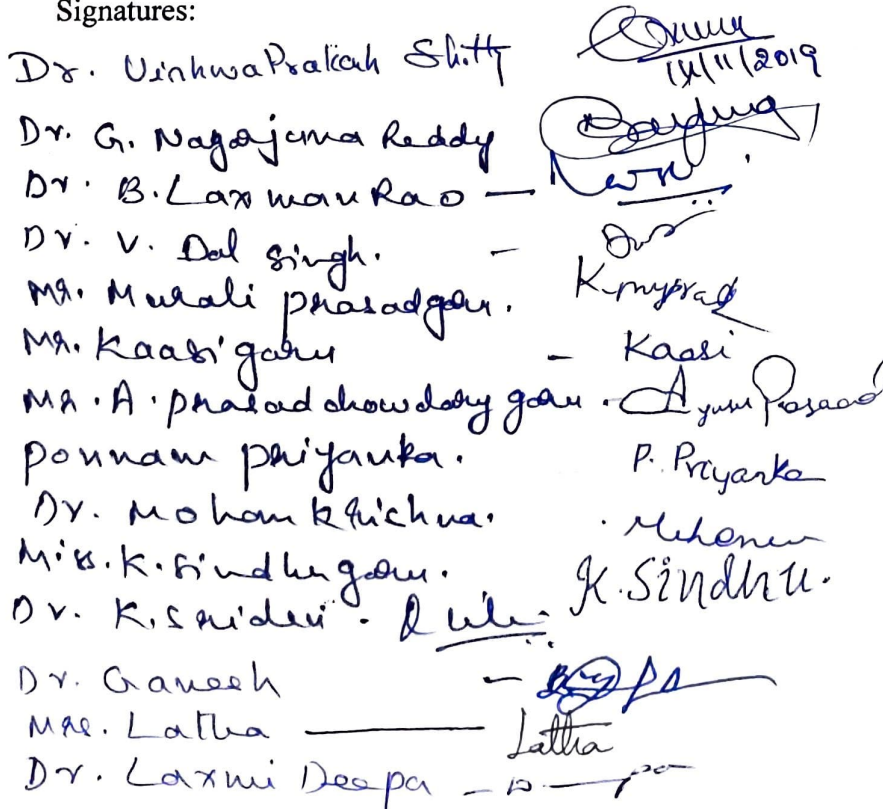 Signatures:
Dr. Vishwa Prakash Shitty
14/11/2019
Dr. G. Nagarjuna Reddy
Dr. B. Laxman Rao -
Dr. V. Dal Singh. -
Mr. Murali prasad garu. K. myprad
Mr. Kaasi garu - Kaasi
Mr. A. prasad chowdary garu. Prasad
Ponnam priyanka. P. Priyanka
Dr. Mohan Krishna.
Miss. K. Sindhu garu. K. Sindhu.
Dr. K. Sridevi.
Dr. Ganesh -
Mrs. Latha - Latha
Dr. Laxmi Deepa -